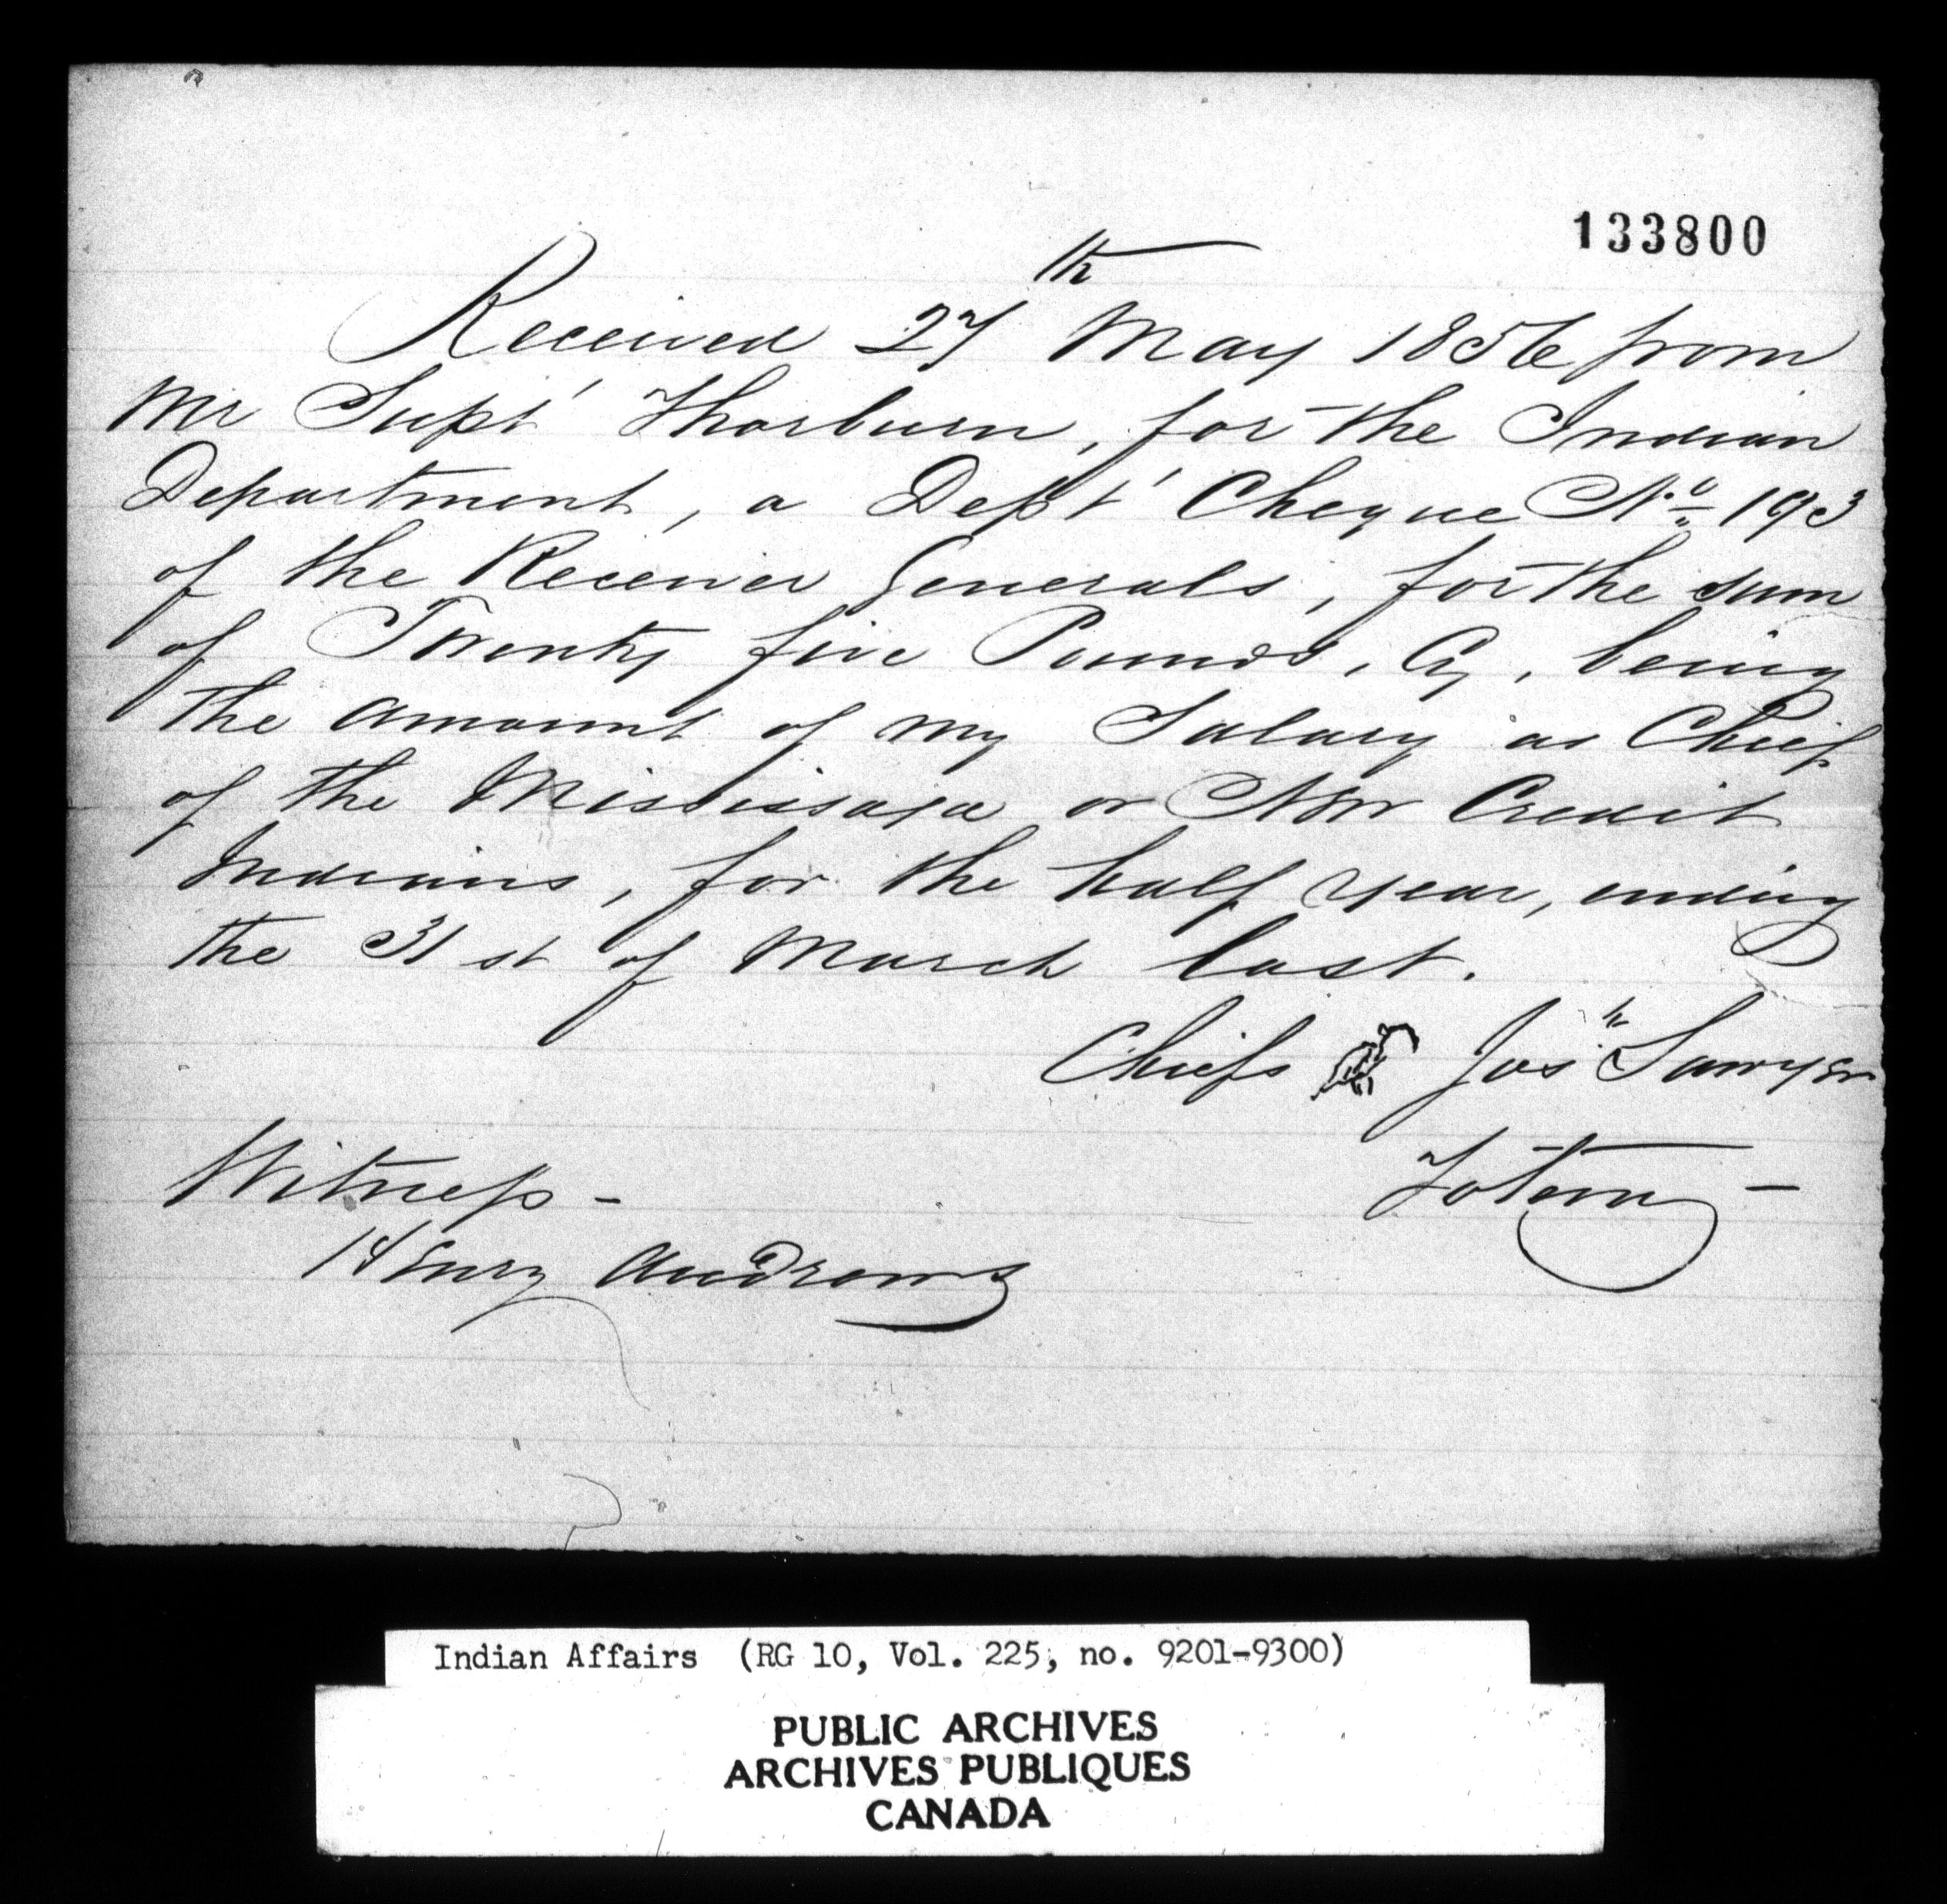 133800
Received 27th May 1856 from
Mr Supt Thorburn, for the Indian
Department, a Dept Cheque No 193
of the Receiver Generals, for the sum
of Twenty five Pounds, Cy, being
the amount of my Salary as Chief
of the Mississaga or New Credit
Indians, for the half year, ending
the 31st of March last.
Chiefs Josh Sawyer
Totem —
Witness -
Henry Andrews
Indian Affairs (RG 10, Vol. 225, no. 9201-9300)
PUBLIC ARCHIVES
ARCHIVES PUBLIQUES
CANADA